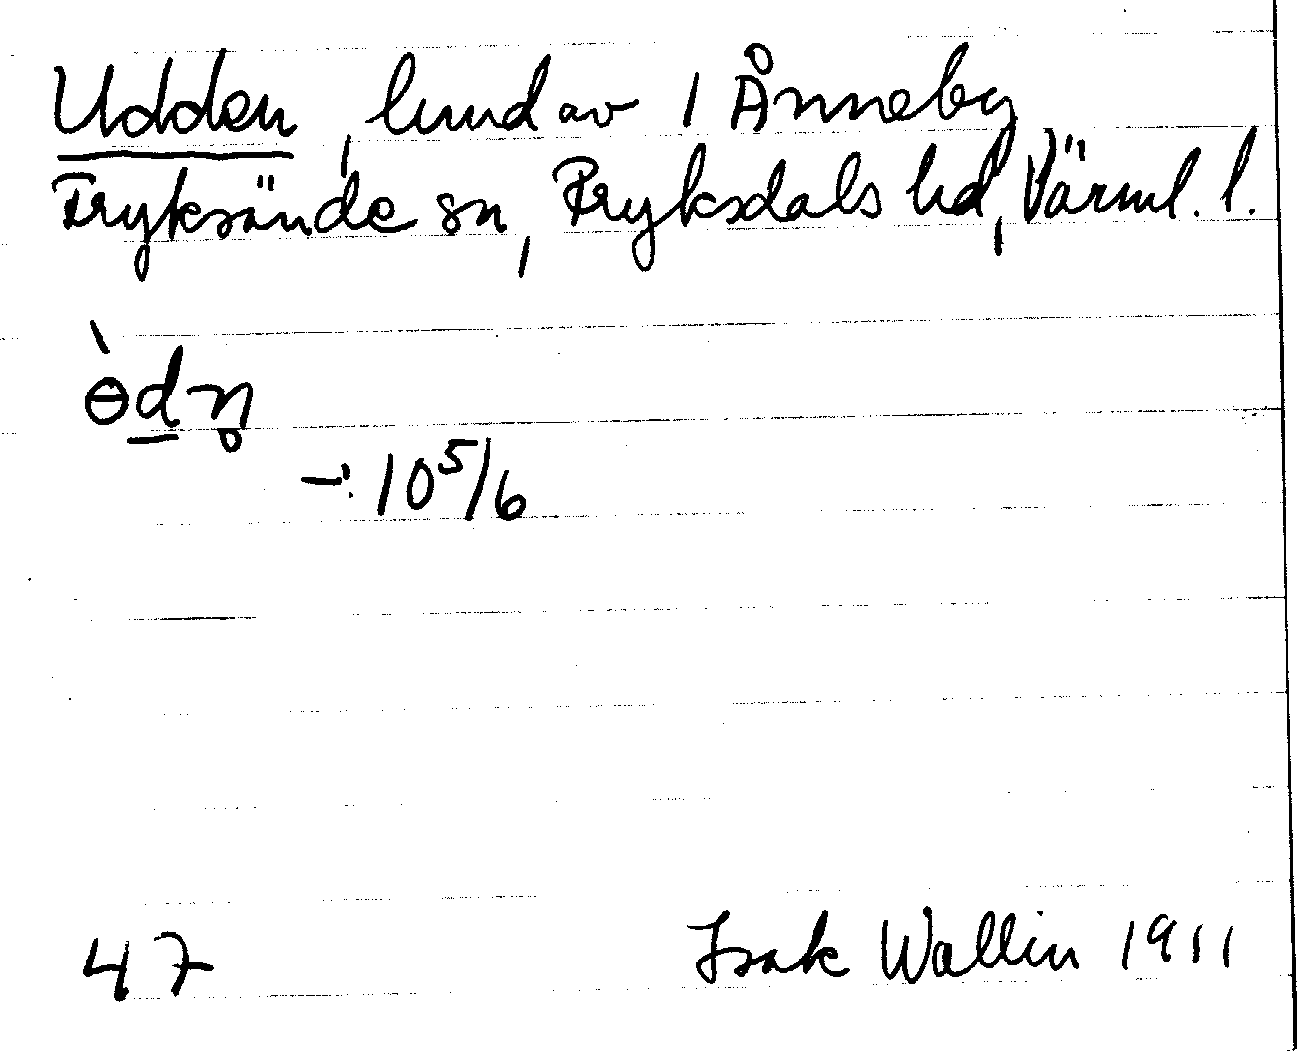 Udden, lund av 1 Ånneby
Fryksände sn, Fryksdals hd, Värml. l.
ɵ̀dn̥
-: 10 5/6
47
Isak Wallin 1911